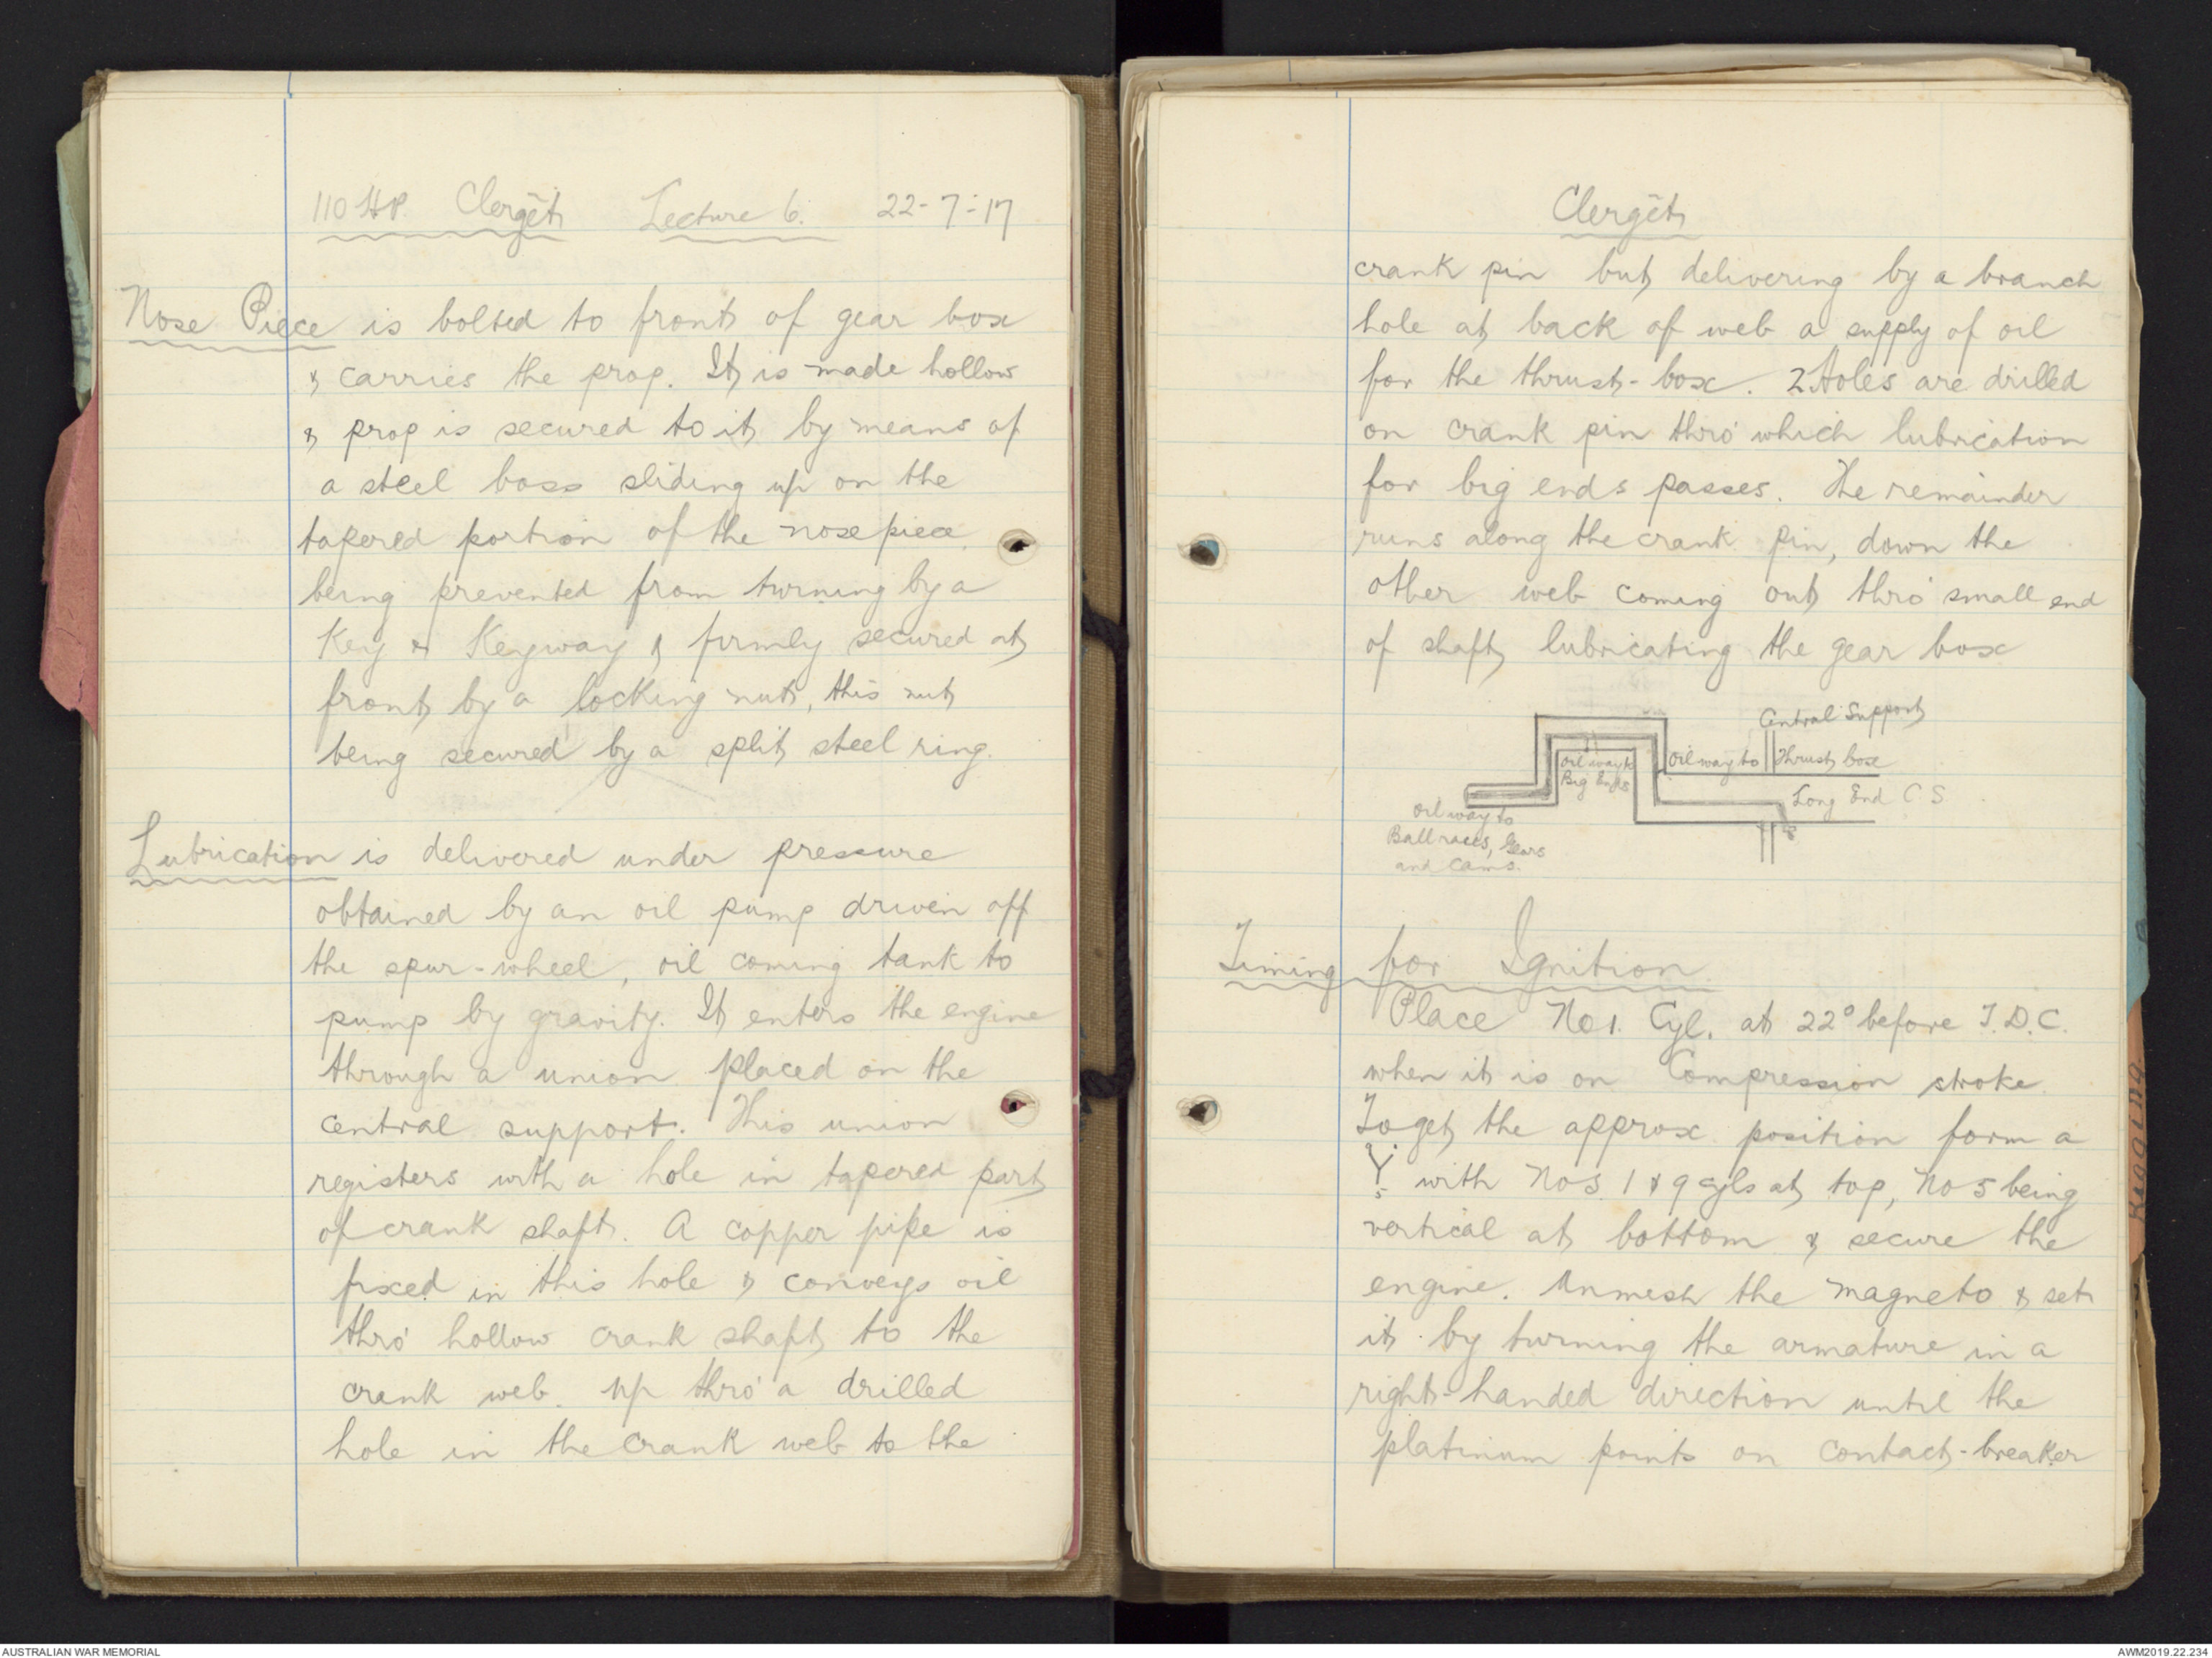 110 H.P. Clergêt Lecture 6. 22-7-17
Nose Piece is bolted to front of gear box
& carries the prop. It is made hollow
& prop is secured to it by means of
a steel boss sliding up on the
tapered portion of the nose piece
being prevented from turning by a
Key & Keyway & firmly secured at
front by a locking nut, this nut
being secured by a split steel ring.
Lubrication is delivered under pressure
obtained by an oil pump driven off
the spur-wheel, oil coming tank to
pump by gravity. It enters the engine
through a union placed on the
central support. This union
registers with a hole in tapered part
of crank shaft. A copper pipe is
fixed in this hole & conveys oil
thro' hollow crank shaft to the
crank web. up thro' a drilled
hole in the crank web to the
Clergêt
crank pin but delivering by a branch
hole at back of web a supply of oil
for the thrust-box. 2 Holes are drilled
on crank pin thro' which lubrication
for big ends passes. The remainder
runs along the crank pin, down the
other web coming out thro' small end
of shaft lubricating the gear box
Central Support
Oil way to
Big Ends
Oil way to Thrust box
Long End C.S.
Oil way to
Ball races, Gears
and Cams.
Timing for Ignition
Place No 1. Cyl. at 22° before T.D.C.
when it is on Compression stroke.
To get the approx position form a
Y with Nos. 1 & 9 cyls at top, No 5 being
5
vertical at bottom & secure the
engine. Unmesh the magneto & set
it by turning the armature in a
right-handed direction until the
platinum points on contact-breaker
Rigging.
AUSTRALIAN WAR MEMORIAL
AWM2019.22.234